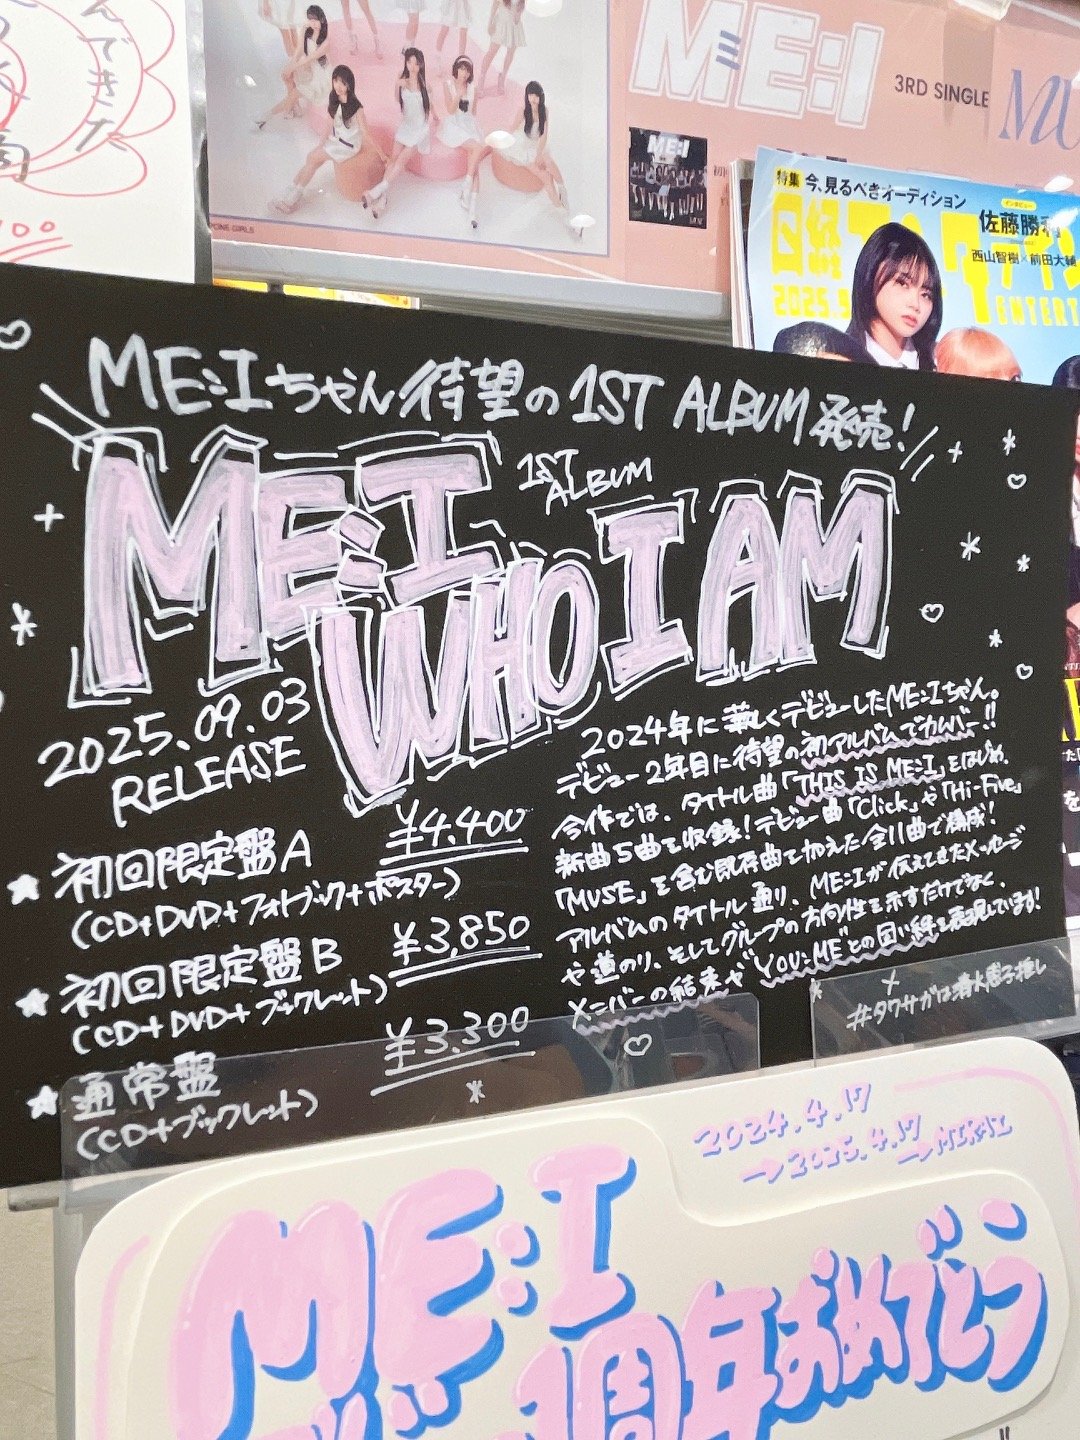 んできた
ME:I
3RD SINGLE
MU
ME:I
特集 今、見るべきオーディション
インタビュー
佐藤勝利
西山智樹×前田大輔
日経エンタテイン
2025.9
ENTERT
ME:Iちゃん待望の1ST ALBUM発売!
ME:I
1ST
ALBUM
WHO I AM
2025.09.03
RELEASE
★初回限定盤A ¥4,400
(CD+DVD+フォトブック+ポスター)
★初回限定盤B ¥3,850
(CD+DVD+ブックレット)
★通常盤 ¥3,300
(CD+ブックレット)
2024年に華々しくデビューしたME:Iちゃん。
デビュー2年目に待望の初アルバムでカムバー!!
今作では、タイトル曲「THIS IS ME:I」をはじめ、
新曲5曲を収録!デビュー曲「Click」や「Hi-Five」
「MUSE」を含む既存曲を加えた全11曲で構成!
アルバムのタイトル通り、ME:Iが伝えてきたメッセージ
や道のり、そしてグループの方向性を示すだけでなく、
メンバーの結束や"YOU:ME"との固い絆を表現しています!
#タワサガは清水恵子推し
2024.4.17
→2025.4.17
→MIRAI
ME:I
1周年おめでとう